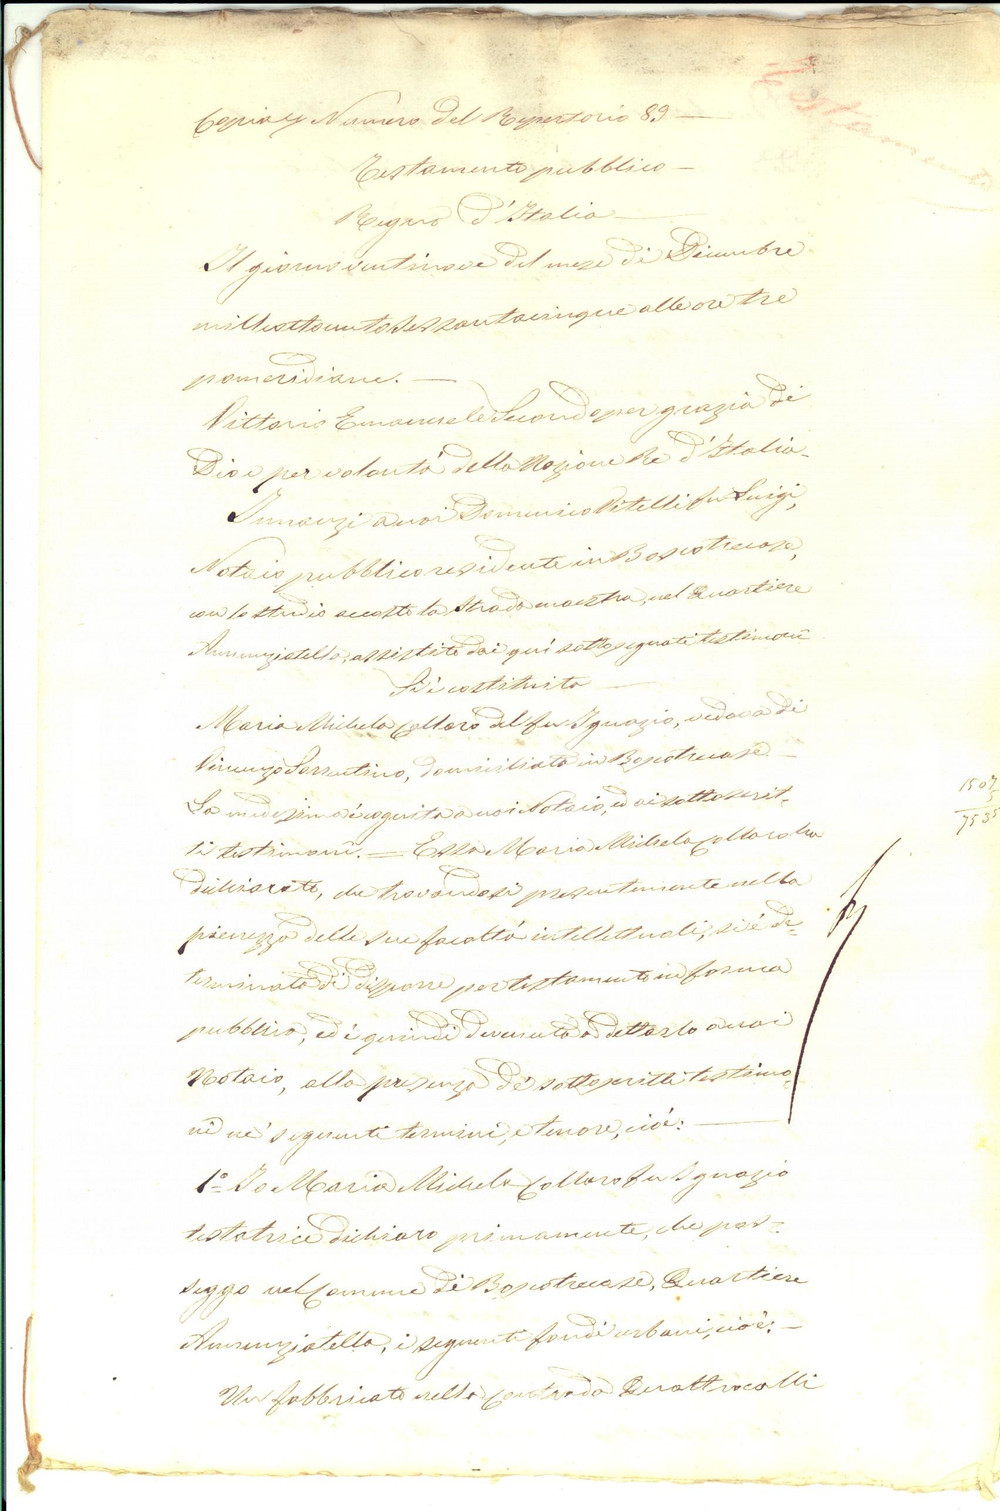 Copia Numero del Repertorio 89 —
Testamento
Testamento pubblico —
Regno d'Italia —
Il giorno ventinove del mese di Dicembre
milleottocentosessantacinque alle ore tre
pomeridiane. —
Vittorio Emanuele Secondo per grazia di
Dio e per volontà della Nazione Re d'Italia.
Innanzi a noi Domenico Vitelli fu Luigi,
Notaio pubblico residente in Boscotrecase,
con lo studio accosto la strada maestra, nel Quartiere
Annunziatella, assistito dai qui sottosegnati testimoni
Si è costituita —
Maria Michela Collaro del fu Ignazio, vedova di
Vincenzo Sorrentino, domiciliata in Boscotrecase. —
La medesima è cognita a noi Notaio, ed ai sottoscrit-
ti testimoni. = Essa Maria Michela Collaro ha
dichiarato, che trovandosi presentemente nella
pienezza delle sue facoltà intellettuali, si è de-
terminata di disporre per testamento in forma
pubblica, ed è quindi devenuta a dettarlo a noi
Notaio, alla presenza de' sottoscritti testimo-
ni ne' seguenti termini, e tenore, cioè: —
1º Io Maria Michela Collaro fu Ignazio
testatrice dichiaro primamente, che pos-
seggo nel Comune di Boscotrecase, Quartiere
Annunziatella, i seguenti fondi urbani, cioè: —
Un fabbricato nella Contrada Quattrocolli
1507
5
7535